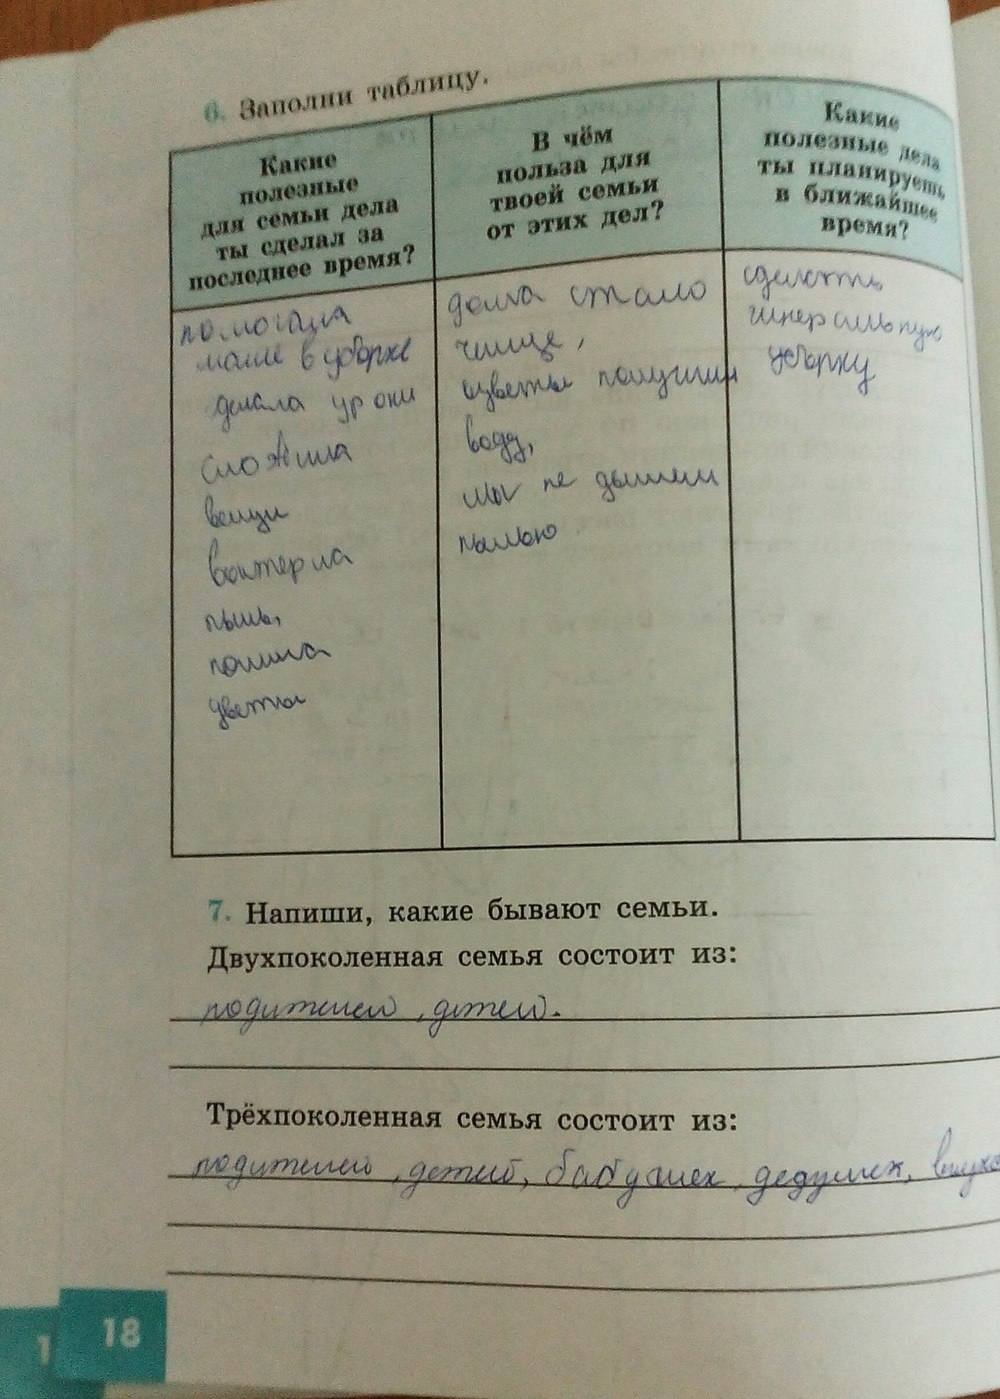 6. Заполни таблицу.
Какие
полезные
для семьи дела
ты сделал за
последнее время?
В чём
польза для
твоей семьи
от этих дел?
Какие
полезные дела
ты планируешь
в ближайшее
время?
помогала
маме в уборке
делала уроки
сложила
вещи
вытерла
пыль,
полила
цветы
дома стало
чище,
цветы получили
воду,
мы не дышем
пылью
сделать
гинеральную
уборку
7. Напиши, какие бывают семьи.
Двухпоколенная семья состоит из:
родителей, детей.
Трёхпоколенная семья состоит из:
родителей, детей, бабушек, дедушек,
18
1